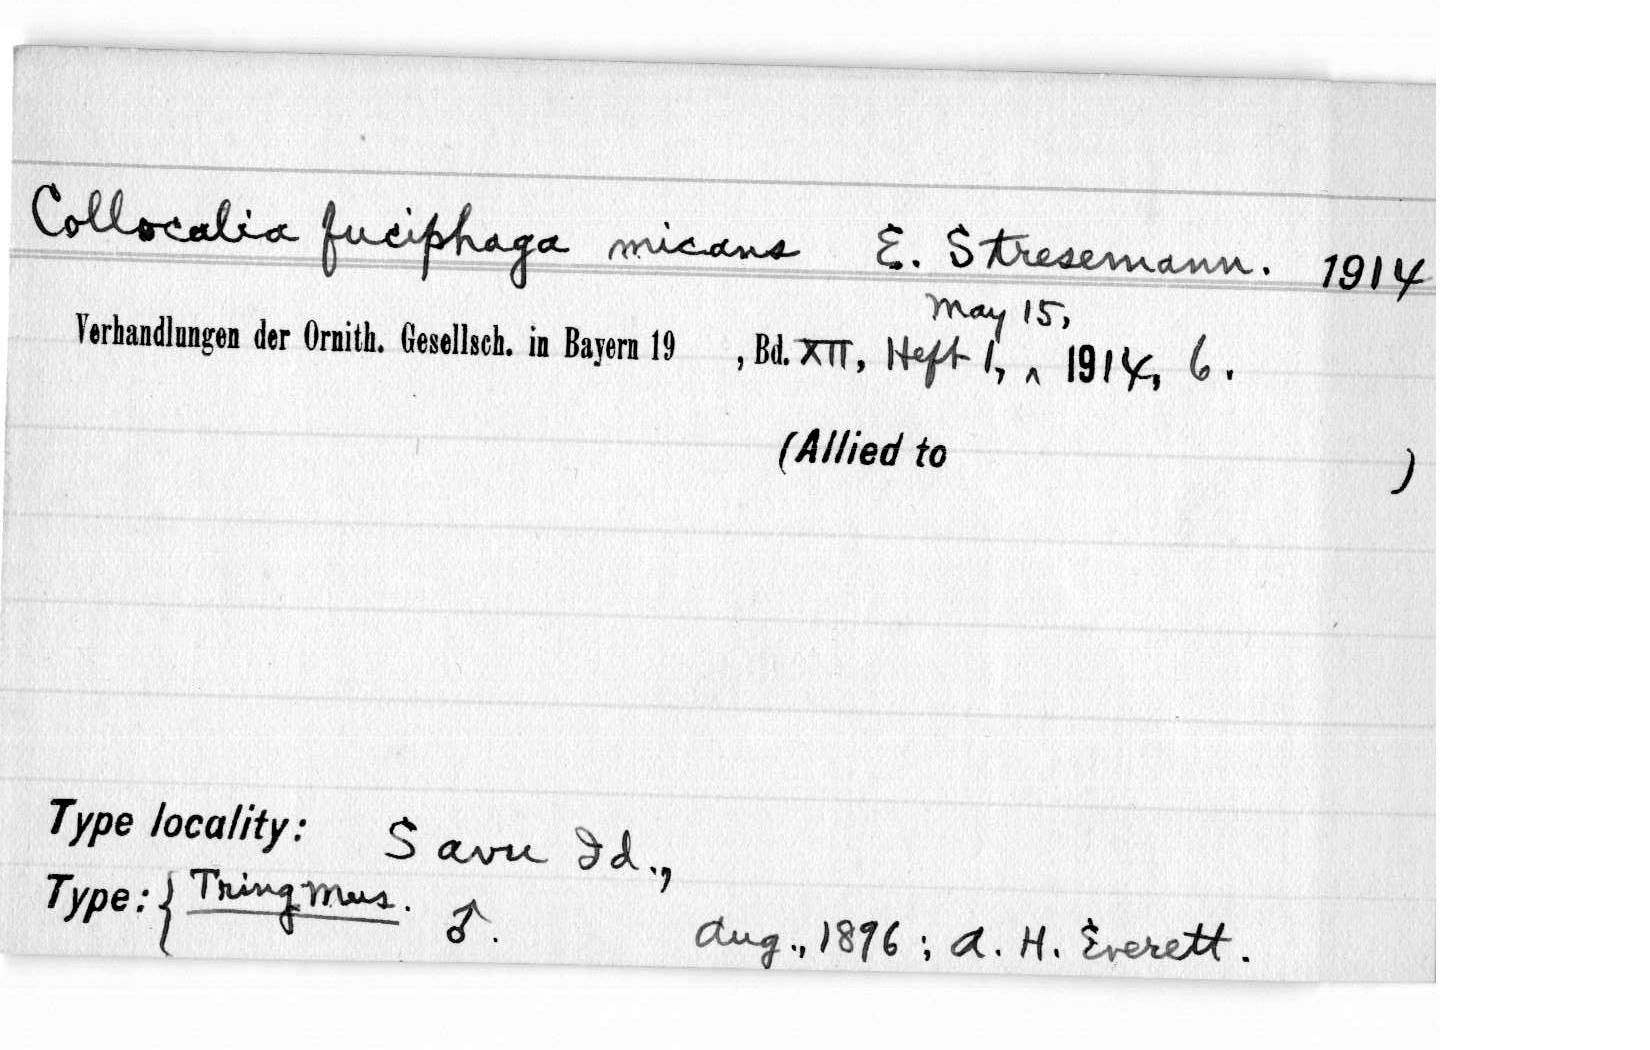 Collocalia fuciphaga micans E. Stresemann. 1914
May 15,
Verhandlungen der Ornith. Gesellsch. in Bayern 19 , Bd. XII, Heft 1, ^ 1914, 6.
(Allied to )
Type locality: Savu Id.,
Type: { Tring Mus. ♂. Aug., 1896 ; A. H. Everett.